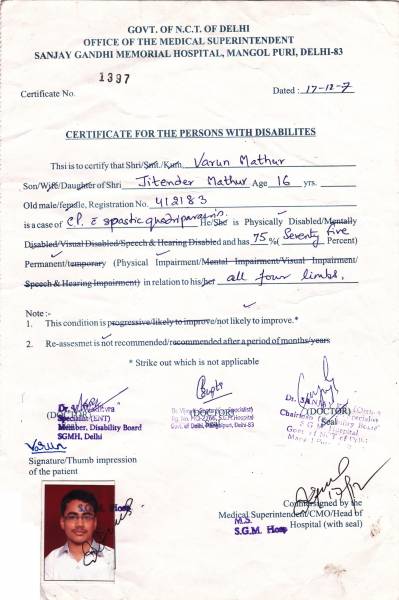 GOVT. OF N.C.T. OF DELHI
OFFICE OF THE MEDICAL SUPERINTENDENT
SANJAY GANDHI MEMORIAL HOSPITAL, MANGOL PURI, DELHI-83
1397
Certificate No. Dated : 17-12-7
CERTIFICATE FOR THE PERSONS WITH DISABILITES
Thsi is to certify that Shri/Smt./Kum. Varun Mathur
Son/Wife/Daughter of Shri Jitender Mathur Age 16 yrs.
Old male/female, Registration No. 412183
is a case of C.P. spastic quadriparesis. He/She is Physically Disabled/Mentally
Disabled/Visual Disabled/Speech & Hearing Disabled and has 75 % ( Seventy five Percent)
Permanent/temporary (Physical Impairment/Mental Impairment/Visual Impairment/
Speech & Hearing Impairment) in relation to his/her all four limbs.
Note :-
1. This condition is progressive/likely to improve/not likely to improve.*
2. Re-assesmet is not recommended/recommended after a period of months/years
* Strike out which is not applicable
(DOCTOR) (DOCTOR) (DOCTOR)
Specialist (ENT) Seal
Member, Disability Board
SGMH, Delhi
Govt. of Delhi, Mangolpuri, Delhi-83
S.G.M. Hospital
Varun
Signature/Thumb impression
of the patient
Countersigned by the
Medical Superintendent/CMO/Head of
Hospital (with seal)
M.S.
S.G.M. Hosp